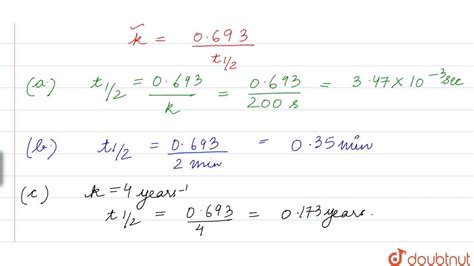 k = 0.693 / t1/2
(a.) t1/2 = 0.693 / k = 0.693 / 200 s = 3.47 × 10⁻³ sec
(b.) t1/2 = 0.693 / 2 min = 0.35 min
(c) k = 4 years⁻¹
t1/2 = 0.693 / 4 = 0.173 years.
doubtnut